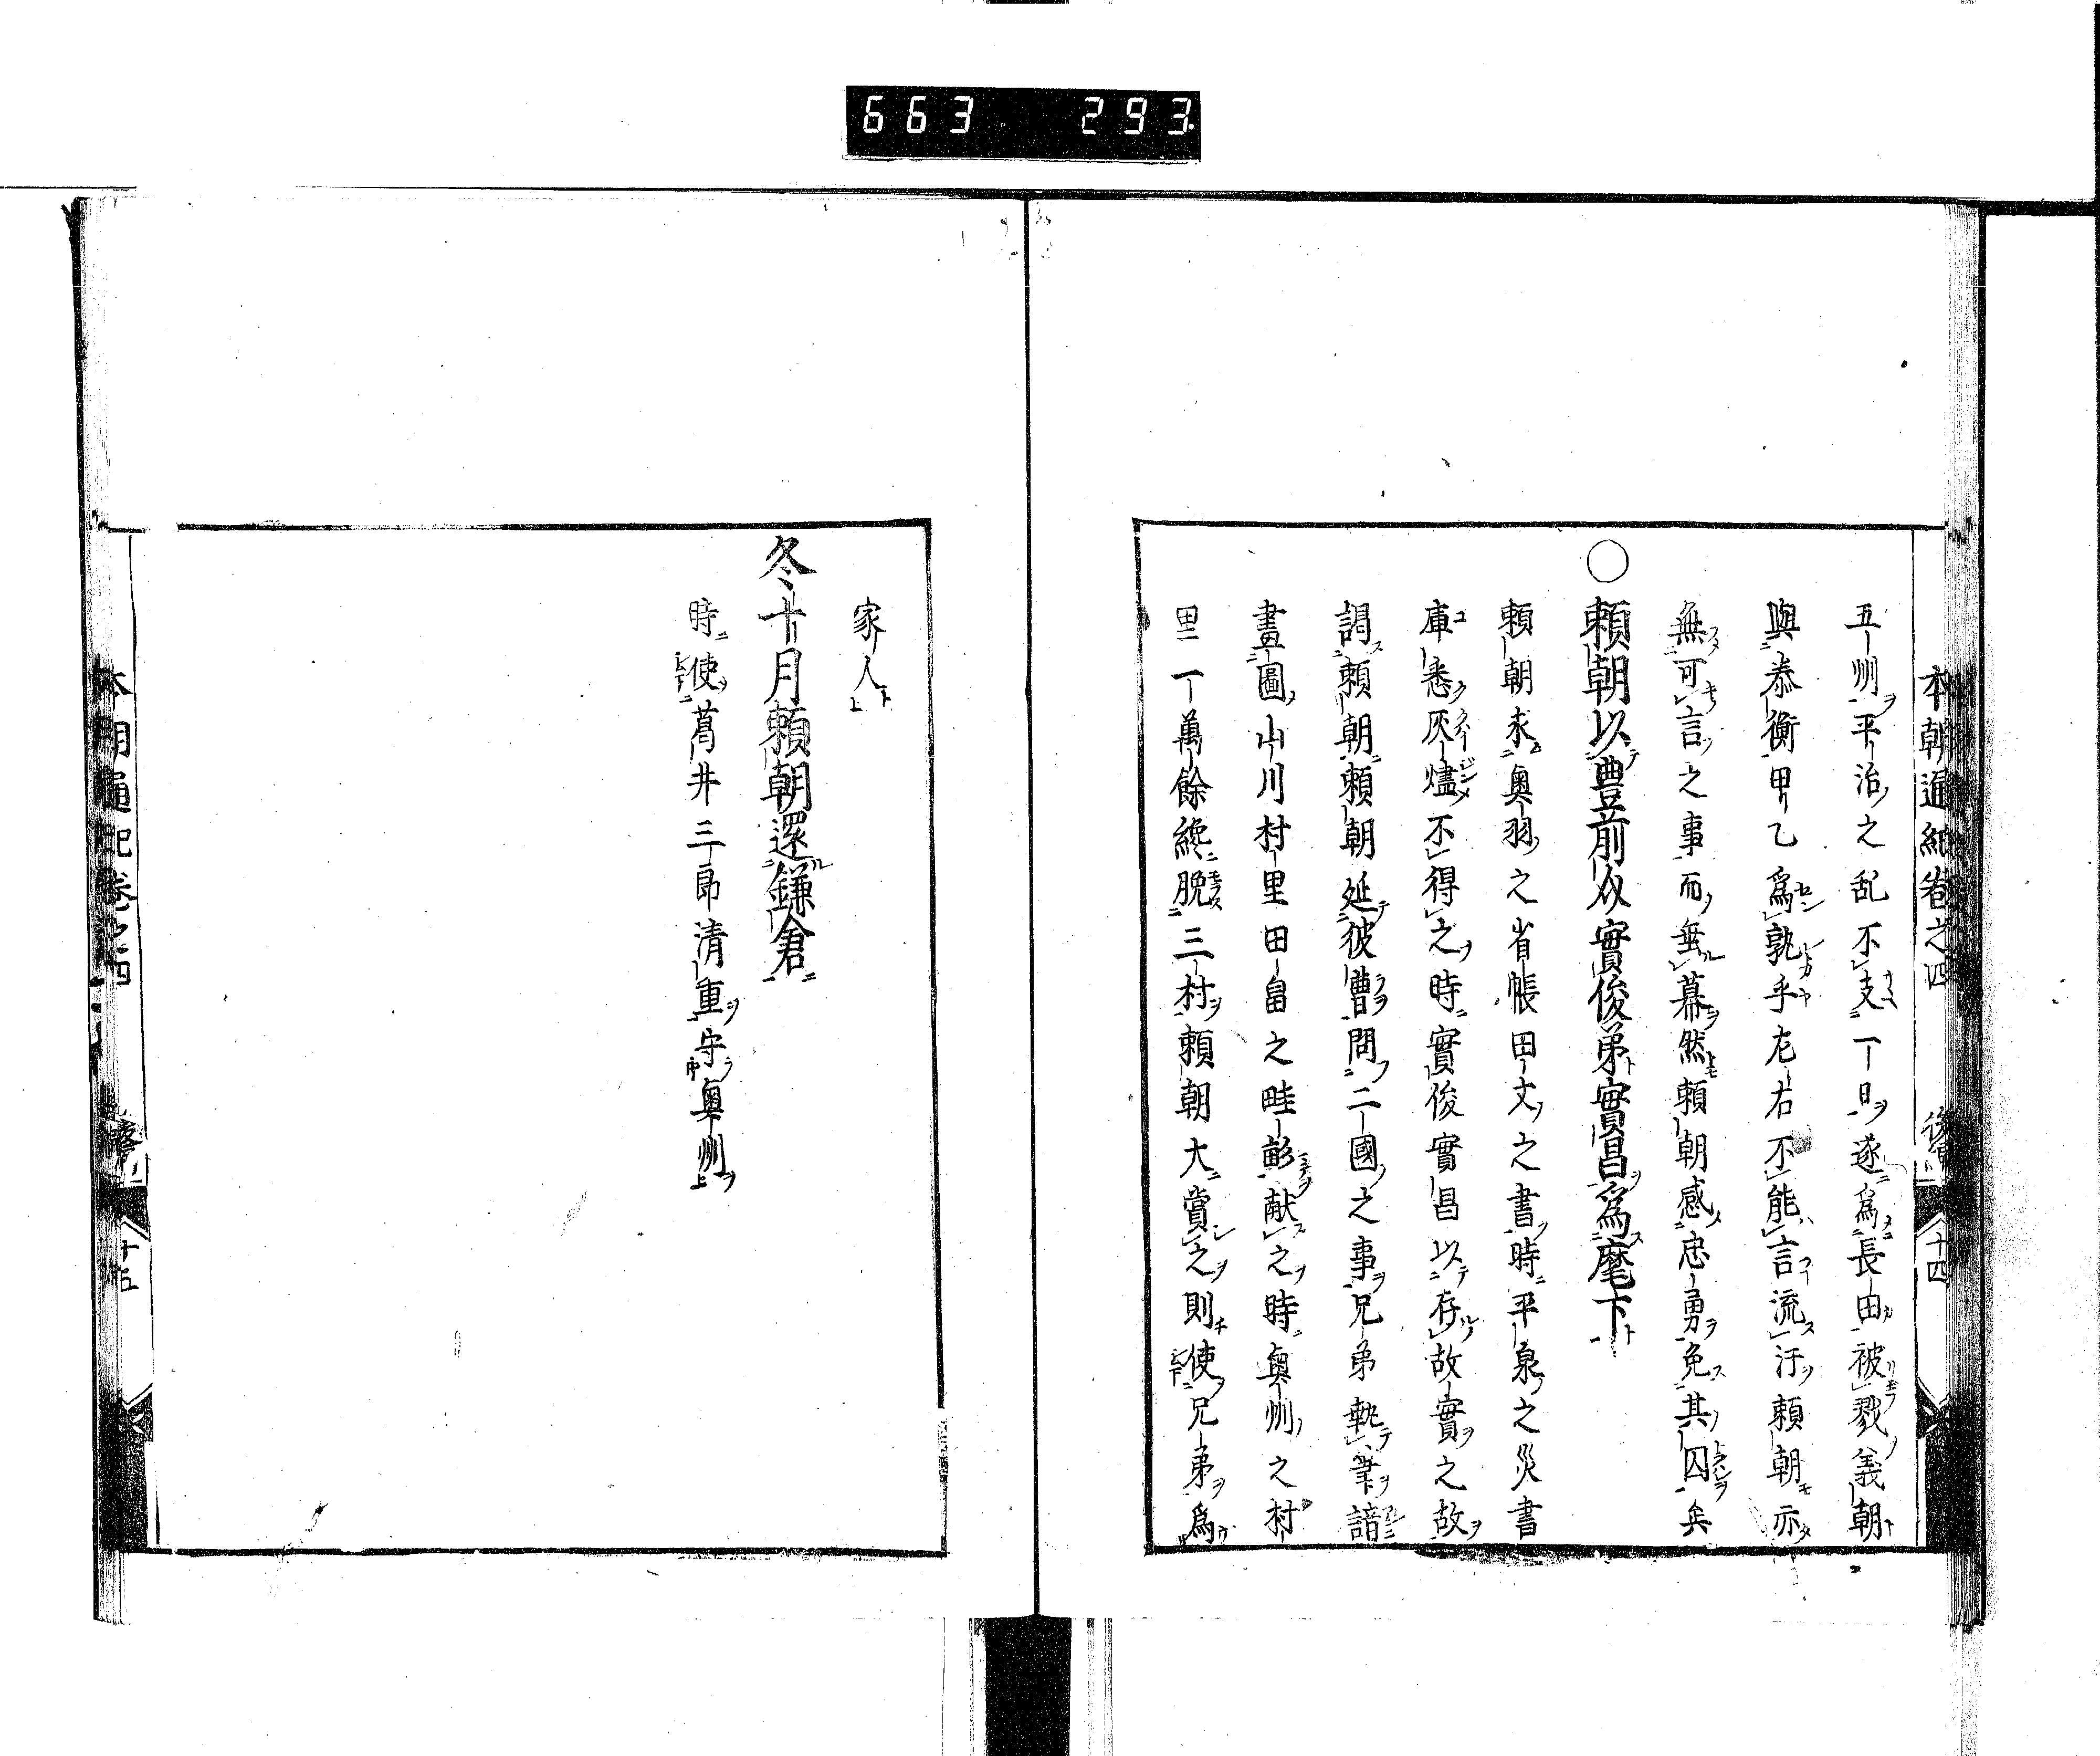 663 293
本朝通紀卷之四 後 十四
五州平治之乱不支一旦遂爲長田被戮義朝
與泰衡甲乙爲孰乎左右不能言流汗頼朝亦
無可言之事而無幕然頼朝感忠勇免其囚矣
○頼朝以豊前介實俊弟實昌爲麾下
頼朝求奥羽之省帳田文之書時平泉之災書
庫悉灰燼不得之時實俊實昌以存故實之故
謁頼朝頼朝延彼曹問二國之事兄弟執筆諳
畫圖山川村里田畠之畦畝献之時奥州之村
里一萬餘纔脱三村頼朝大賞之則使兄弟爲
家人
冬十月頼朝還鎌倉
時使葛井三郎清重守奥州
本朝通紀卷之四 十五